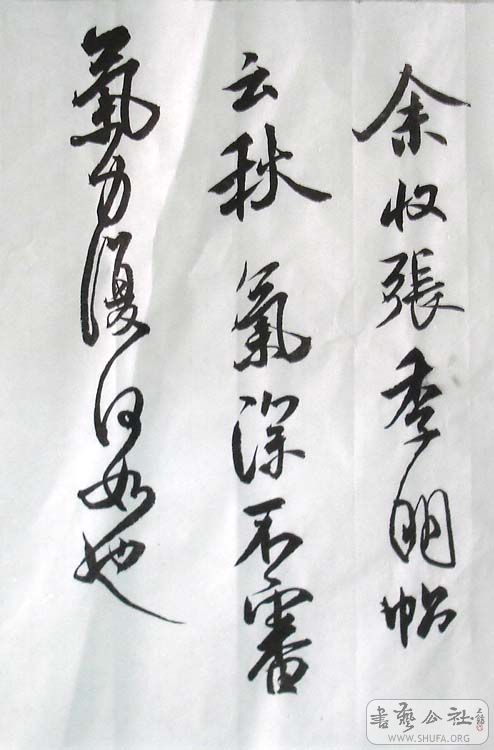 余收張季明帖
云秋氣深不審
氣力復何如也
書藝公社
WWW.SHUFA.ORG